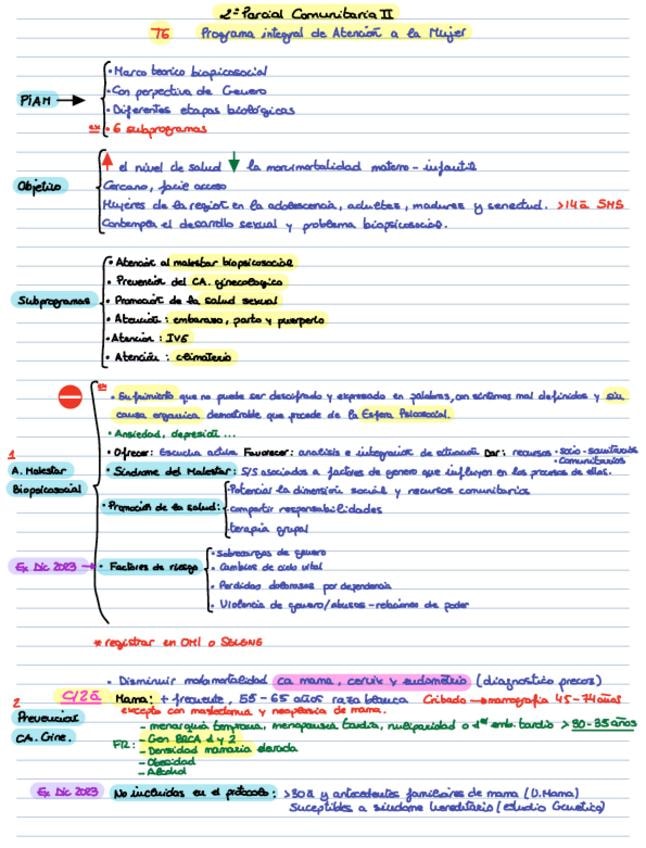 2º Parcial Comunitaria II
T6 Programa integral de Atención a la Mujer
PiAM →
• Marco teorico biopicosocial
• Con perpectiva de Genero
• Diferentes etapas biológicas
ex • 6 subprogramas
Objetivo
↑ el nivel de salud ↓ la morvimortalidad materno-infantil
Cercano, facil acceso
Mujeres de la region en la adolescencia, adultez, madurez y senectud. >14 a SMS
Contempla el desarrollo sexual y problema biopsicosocial.
Subprogramas
• Atención al malestar biopsicosocial
• Prevención del CA. ginecologico
• Promoción de la salud sexual
• Atención: embarazo, parto y puerperio
• Atención: IVE
• Atención: climaterio
1
A. Malestar
Biopsicosocial
ex
• Sufrimiento que no puede ser descifrado y expresado en palabras, con sintomas mal definidos y sin
causa organica demostrable que procede de la Esfera Psicosocial.
• Ansiedad, depresión...
• Ofrecer: Escucha activa Favorecer: analisis e integración de situación Dar: recursos • socio-sanitarios
• Comunitarios
• Síndrome del Malestar: S/S asociados a factores de genero que influyen en los procesos de ellas.
• Promoción de la salud:
Potenciar la dimensión social y recursos comunitarios
compartir responsabilidades
terapia grupal
Ex Dic 2023 → • Factores de riesgo
• Sobrecargas de genero
• Cambios de ciclo vital
• Perdidas dolorosas por dependencia
• Violencia de genero/abusos-relaciones de poder
* registrar en OMI o SELENE
2
Prevencion
CA. Gine.
• Disminuir morbimortalidad ca mama, cervix y endometrio (diagnostico precoz)
C/2 a Mama: + frecuente, 55-65 años raza blanca Cribado → mamografia 45-74 años
excepto con mastectomia y neoplasia de mama.
FR:
- menarquia temprana, menopausia tardia, nuliparidad o 1er emb. tardio > 30-35 años
- Gen BRCA 1 y 2
- Densidad mamaria elevada
- Obesidad
- Alcohol
Ex Dic 2023 No incluidas en el protocolo: >30 a y antecedentes familiares de mama (U. Mama)
Suceptibles a sindome hereditario (estudio Genetico)